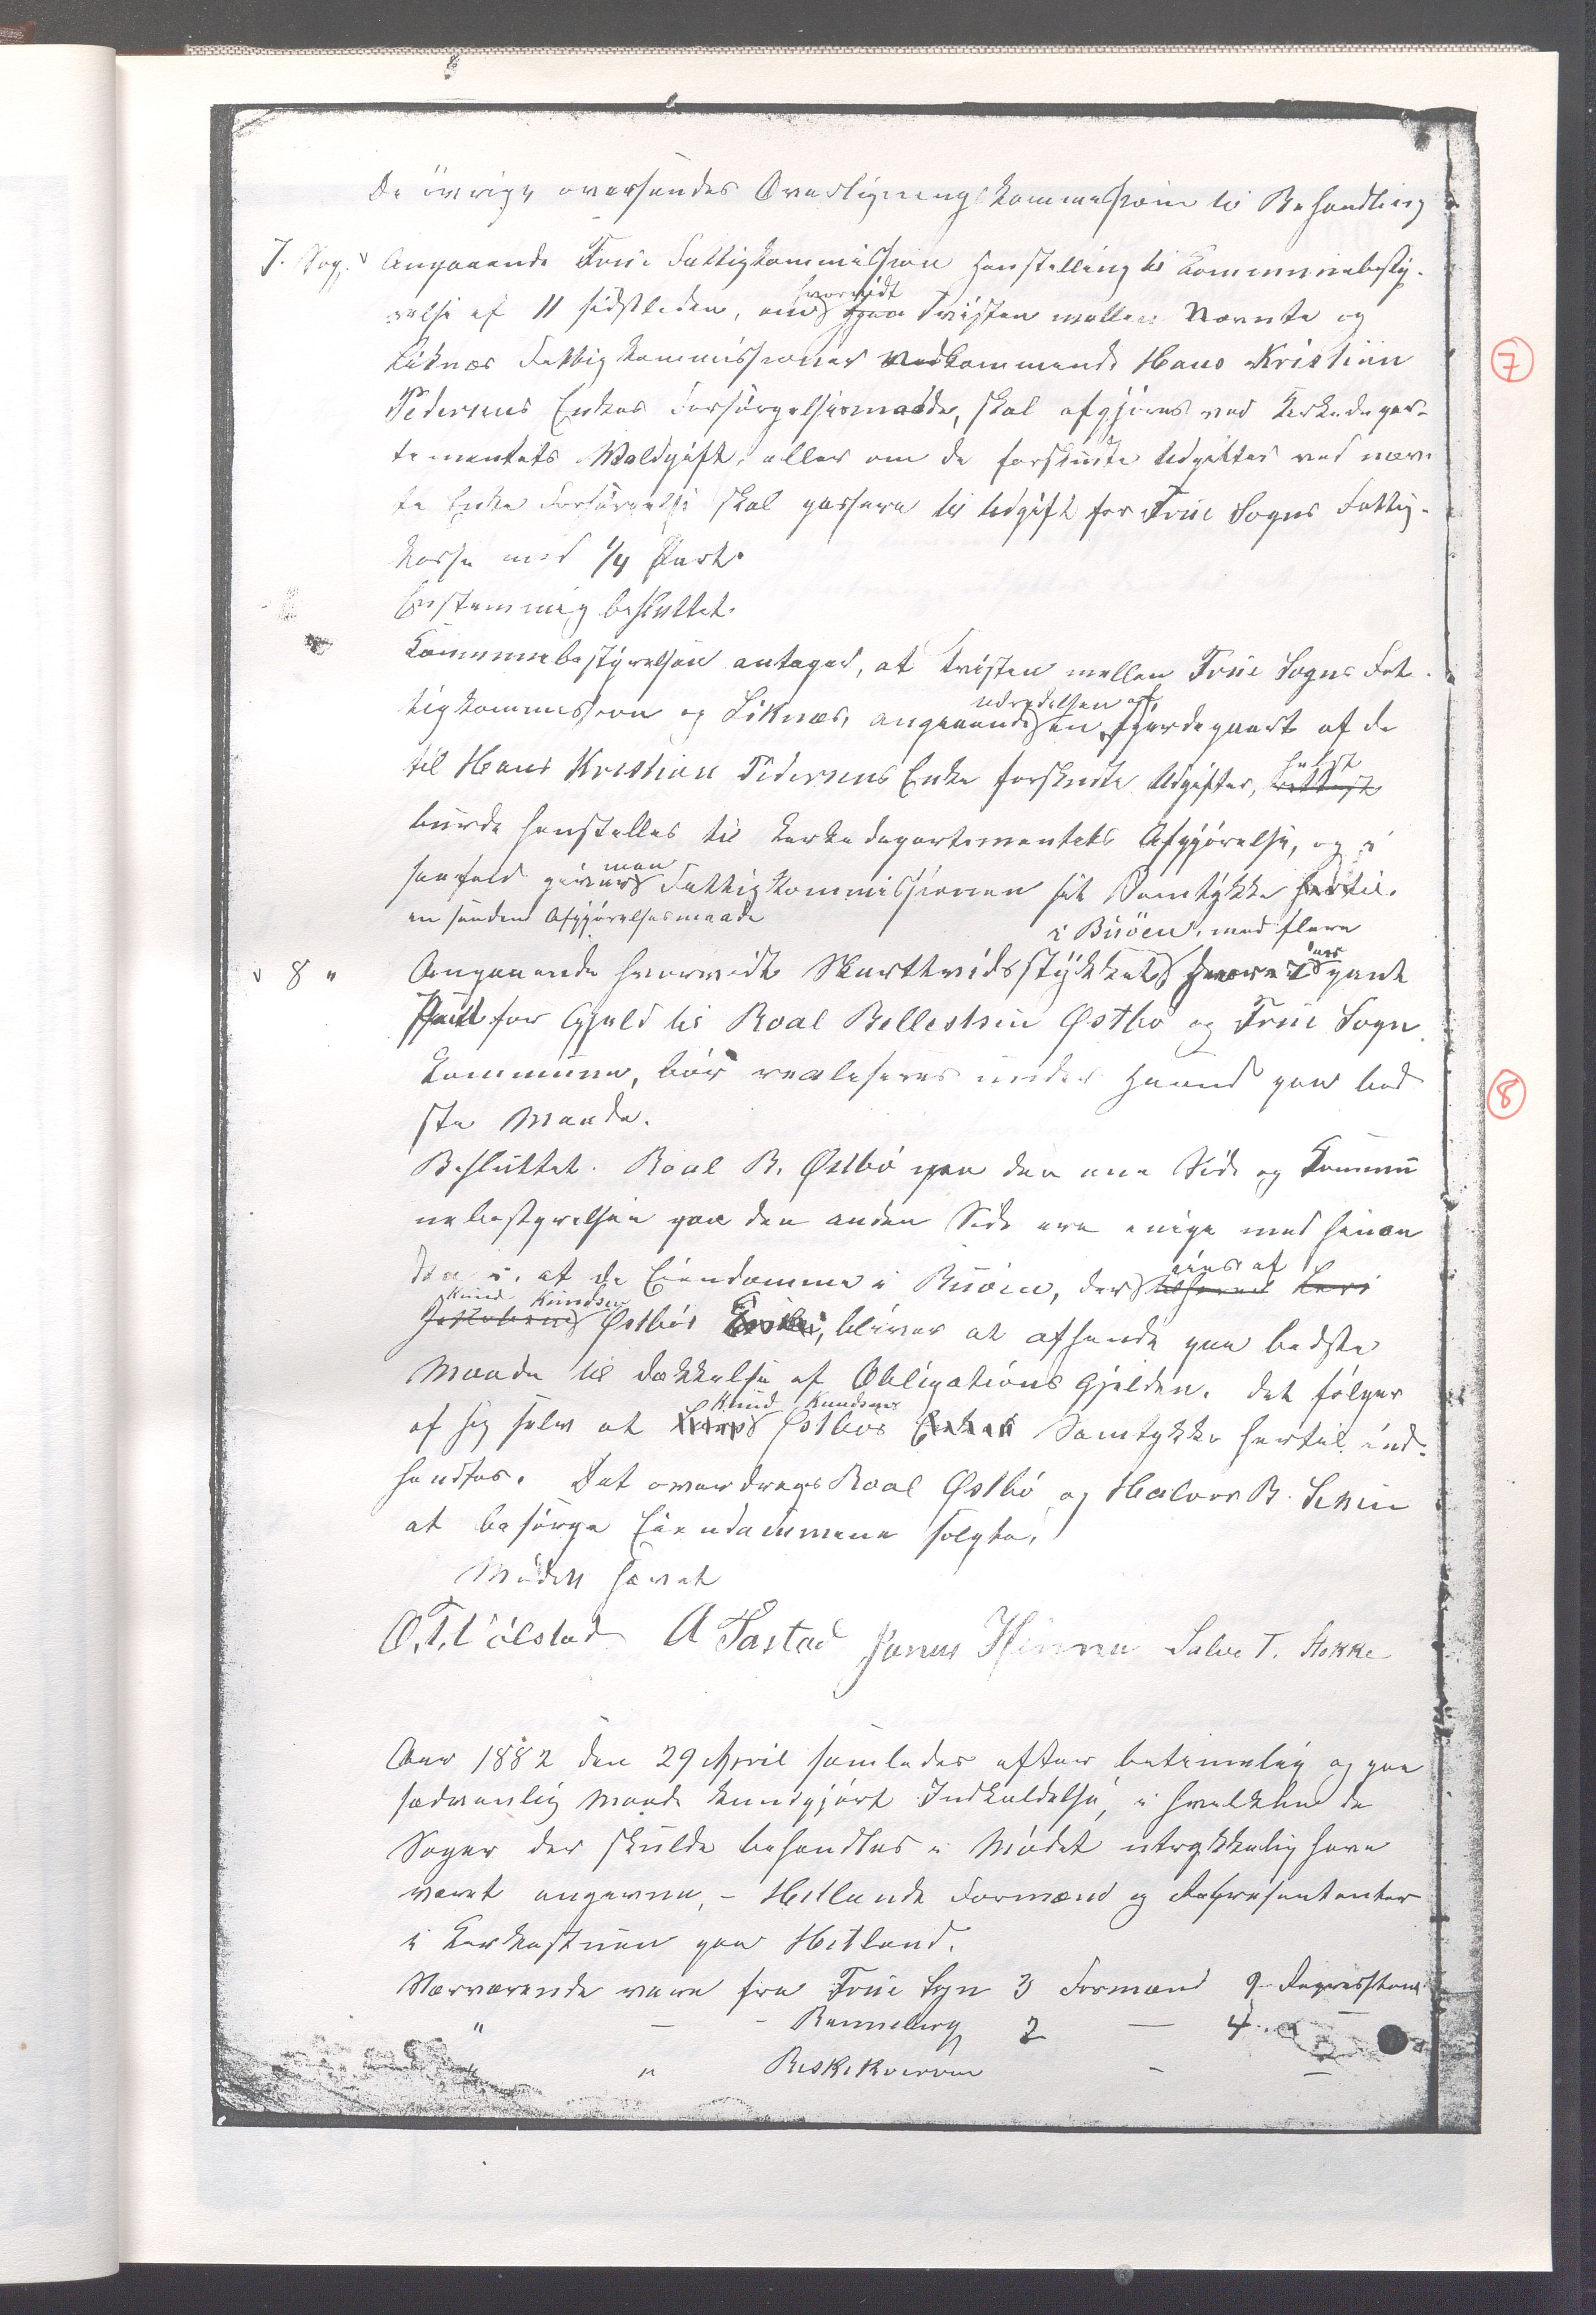 De övrige oversendes Overligningskommissionen til Behandling
7. Sag. Angaaende Fœe Fattigkommission Henstilling til Kommunebesty-
relse af 11 sidstleden, om hvorvidt Tvisten mellem Nævnte og
Liknæs Fattigkommissioner vedkommende Hans Kristian
Pedersens Enkes Forsörgelsesmaade, skal afgjöres ved Kirkedepar-
tementets Voldgift, eller om de forskudte Udgifter ved nævn
te Enke Forsörgelse skal passere til Udgift for Sogns Fattig-
kasse med 1/4 Part.
Enstemmig besluttet.
Kommunebestyrelsen antager, at Tvisten mellem Sogns Fat-
tigkommission og Liknæs, angaaende udredelsen af en fjerdepart af de
til Hans Kristian Pedersens Enke forskudte Udgifter, helst
burde henstilles til Kirkedepartementets Afgjörelse, og i
saafald giver man Fattigkommissionen sit Samtykke hertil.
en saadan Afgjörelsesmaade
i Buöen, med flere
8 " Angaaende hvorvidt Skurthvidsstykket der pant
for Gjæld til Roal Bellestsen Østbö og Sogn
Kommune, bör realiseres under Haand paa bed
ste Maade.
Besluttet. Roal B. Østbö paa den ene Side og Kommu
nebestyrelsen paa den anden Side ere enige med hinan
den i, at de Eiendomme i Buöen, der eies af
Knud Knudsen Østbö, bliver at afhænde paa bedste
Maade til Dækkelse af Obligations Gjelden. Det fölger
af sig selv at Knud Knudsens Østbös Samtykke hertil ind-
hentes. Det overdrages Roal Østbö og Halvor B.
at besörge Eiendommene solgte.
Mödet hævet
A Tastad Jonas Salve T. Stokke
Aar 1882 den 29 April samledes efter betimelig og paa
sædvanlig Maade kundgjört Indkaldelse, i hvilken de
Sager der skulde behandles i Mödet utrykkelig have
været angivne, - Hetlands Formænd og Repræsentanter
i Kirkestuen paa Hetland.
Nærværende vare fra Sogn 3 Formænd 9 Repræsstant
" — - Rennebergg 2 — 4
" " Riskekverven — —
7
8